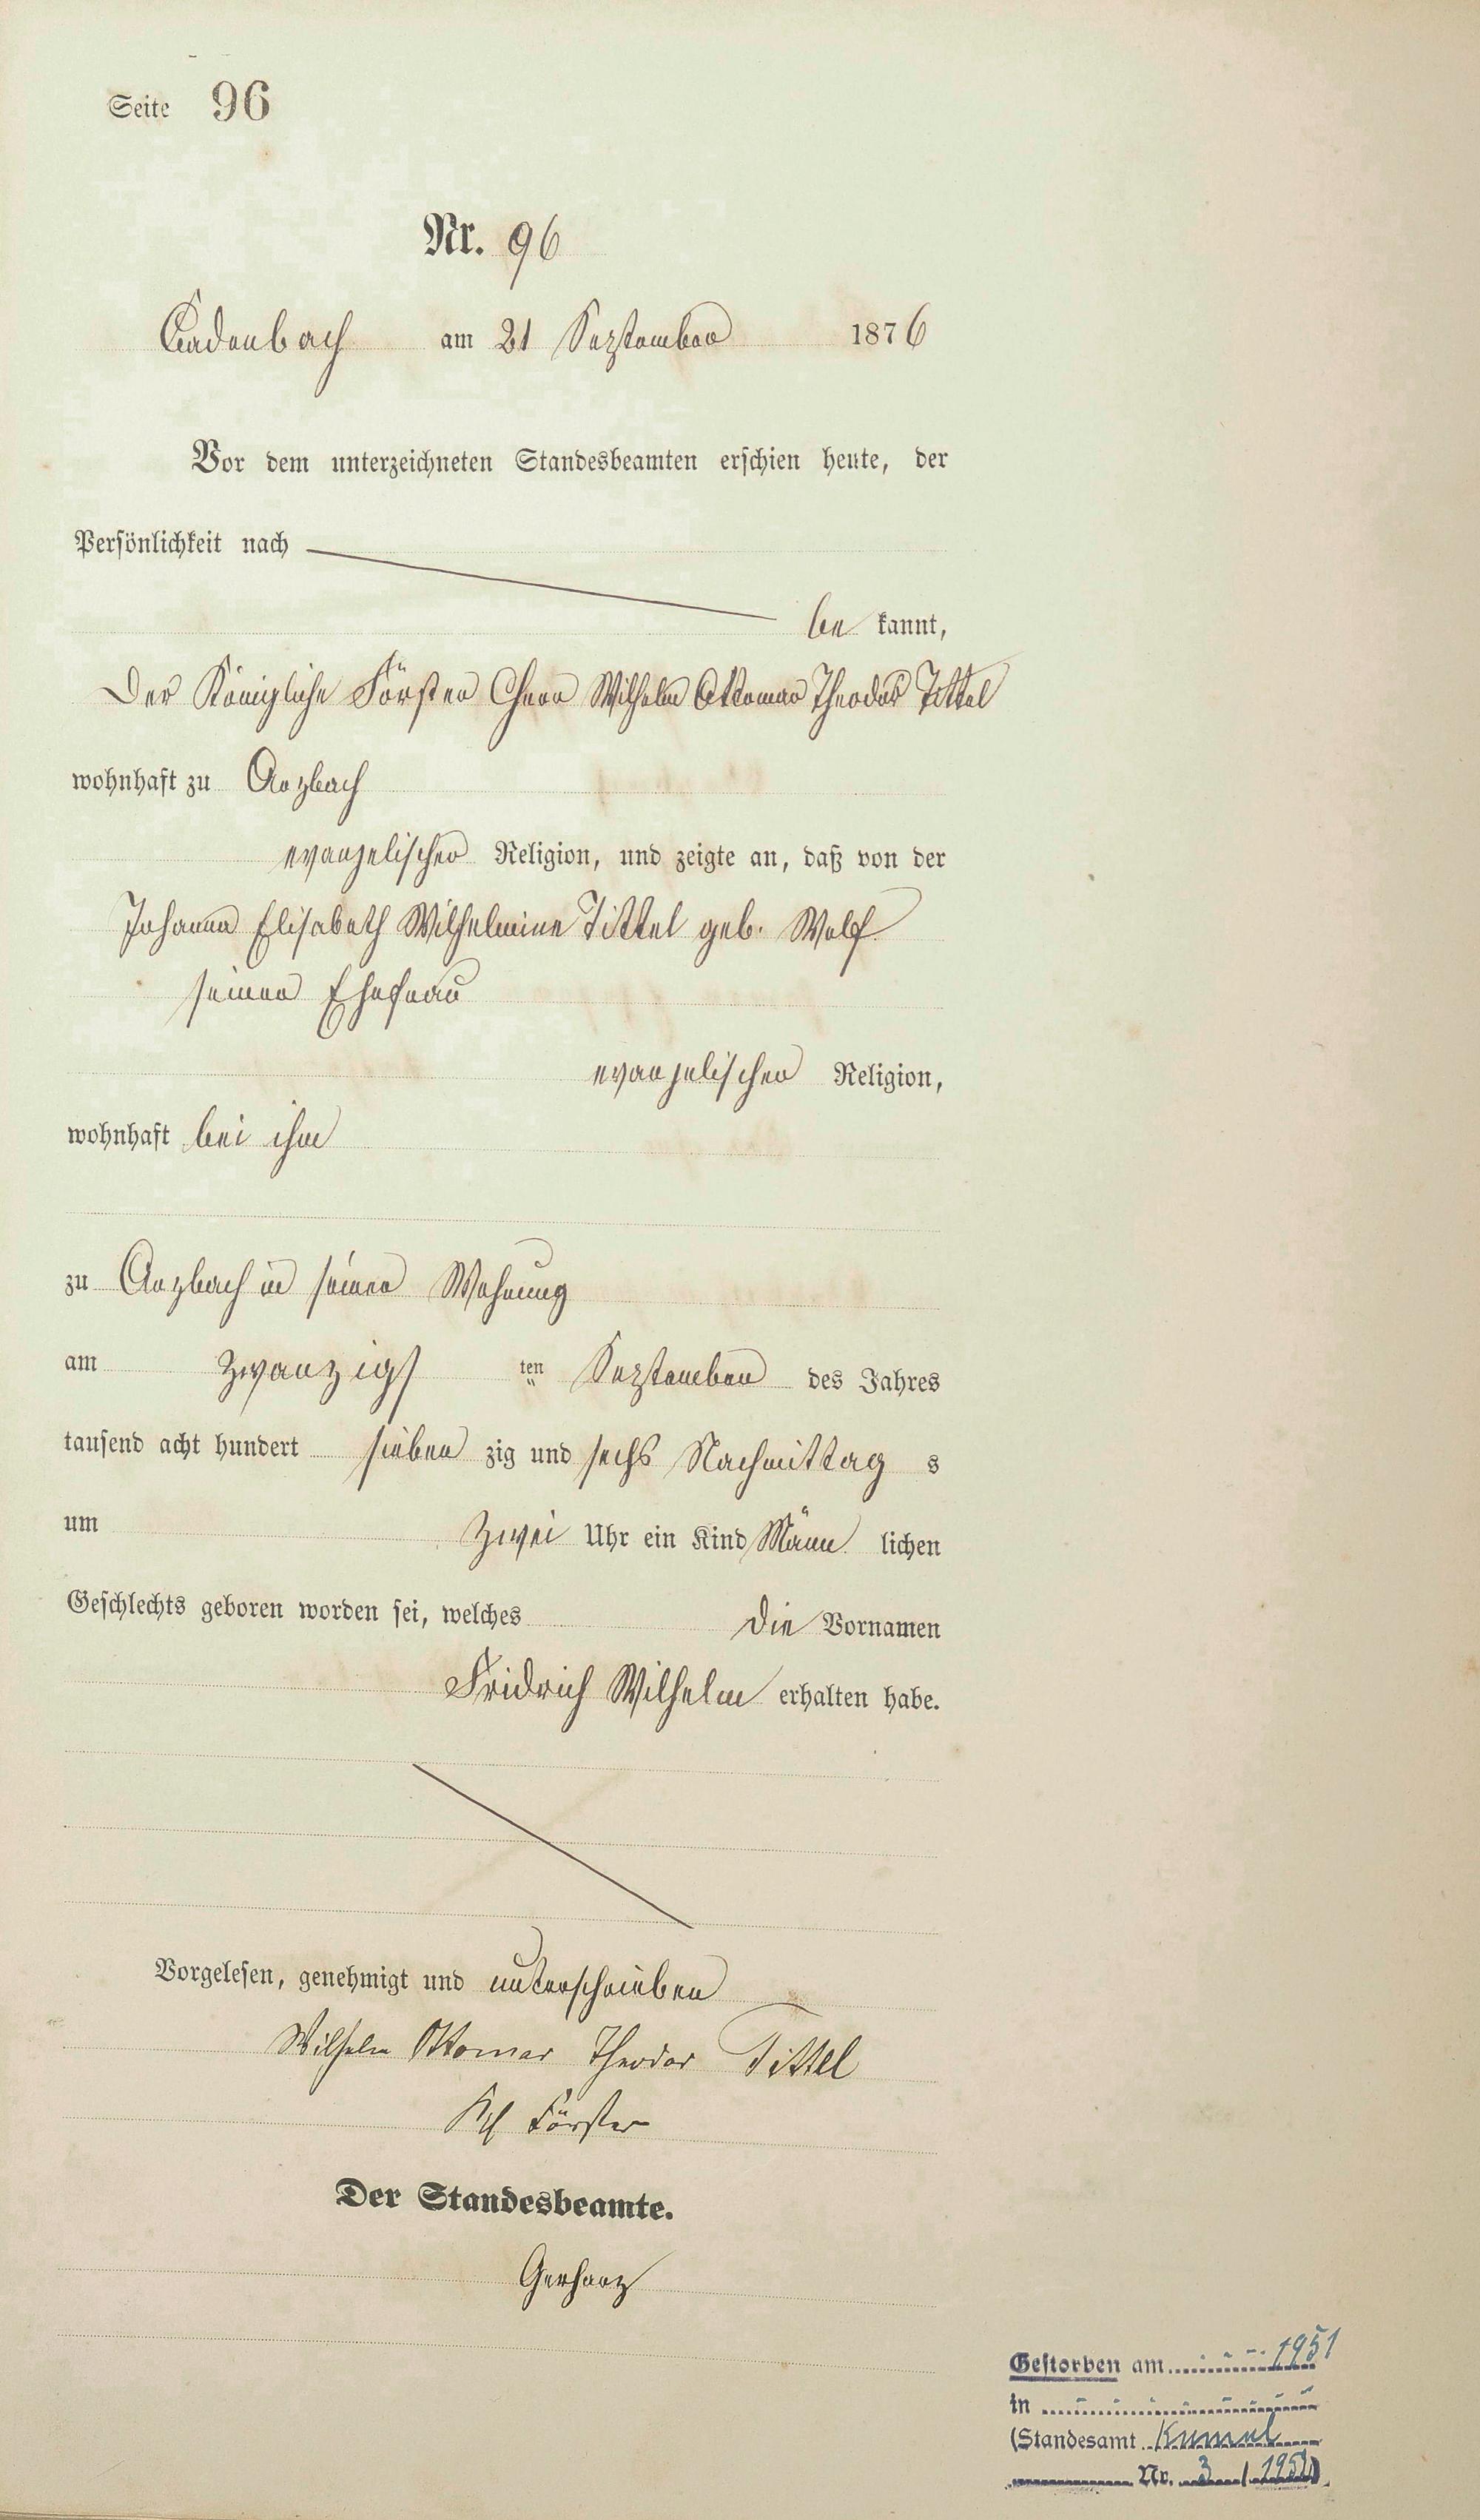 Seite 96
Nr. 96
Cadenbach am 21 September 1876
Vor dem unterzeichneten Standesbeamten erschien heute, der
Persönlichkeit nach
be kannt,
Der Königliche Förster Herr Wilhelm Ottomar Theodor Tittel
wohnhaft zu Arzbach
evangelischer Religion, und zeigte an, daß von der
Johanna Elisabeth Wilhelmine Tittel geb. Wolf
seiner Ehefrau
evangelischer Religion,
wohnhaft bei ihm
zu Arzbach in seiner Wohnung
am zwanzigs ten September des Jahres
tausend acht hundert sieben zig und sechs Nachmittag s
um Zwei Uhr ein Kind Männ lichen
Geschlechts geboren worden sei, welches die Vornamen
Fridrich Wilhelm erhalten habe.
Vorgelesen, genehmigt und unterschrieben
Wilhelm Ottomar Theodor Tittel
Kgl Förster
Der Standesbeamte.
Gerharz
Gestorben am 1951
in
(Standesamt
Nr. 3 / 1951)